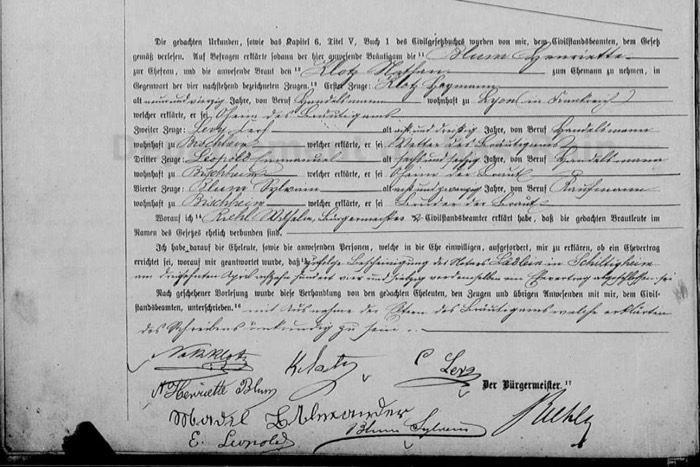 Die gedachten Urkunden, sowie das Kapitel 6, Titel V, Buch 1 des Civilgesetzbuchs wurden von mir, dem Civilstandsbeamten, dem Gesetz
gemäß verlesen. Auf Befragen erklärte sodann der hier anwesende Bräutigam die Blum Henriette
zur Ehefrau, und die anwesende Braut den Klotz Nathan zum Ehemann zu nehmen, in
Gegenwart der vier nachstehend bezeichneten Zeugen: Erster Zeuge: Klotz Heymann
alt Jahre, von Beruf Handelsmann wohnhaft zu Lyon (in Frankreich)
welcher erklärte, er sei Oheim des Bräutigams
Zweiter Zeuge: Levy alt ein und dreißig Jahre, von Beruf Handelsmann
wohnhaft zu Bischheim welcher erklärte, er sei Vetter des Bräutigams
Dritter Zeuge: Leopold Emmanuel alt sechs und sechzig Jahre, von Beruf Handelsmann
wohnhaft zu Bischheim welcher erklärte, er sei Oheim der Braut
Vierter Zeuge: Blum Sylvain alt und zwanzig Jahre, von Beruf Kaufmann
wohnhaft zu Bischheim welcher erklärte, er sei Bruder der Braut
Worauf ich Riehl Wilhelm, Bürgermeister Civilstandsbeamter erklärt habe, daß die gedachten Brautleute im
Namen des Gesetzes ehelich verbunden sind.
Ich habe darauf die Eheleute, sowie die anwesenden Personen, welche in die Ehe einwilligen, aufgefordert, mir zu erklären, ob ein Ehevertrag
errichtet sei, worauf mir geantwortet wurde, daß zufolge Bescheinigung des Notars in Schiltigheim
am dreizehnten April achtzehn hundert vier und siebzig demselben ein Ehevertrag abgeschlossen sei
Nach geschehener Vorlesung wurde diese Verhandlung von den gedachten Eheleuten, den Zeugen und übrigen Anwesenden mit dem, Civil-
standsbeamten, unterschrieben. mit Ausnahme der Eltern des Bräutigams welche erklärten
des Schreibens unkundig zu sein.
Nat Klotz K lotz C Levy
Henriette Blum Der Bürgermeister.
Madel Alexander Blum Sylvain Riehl
E. Leopold